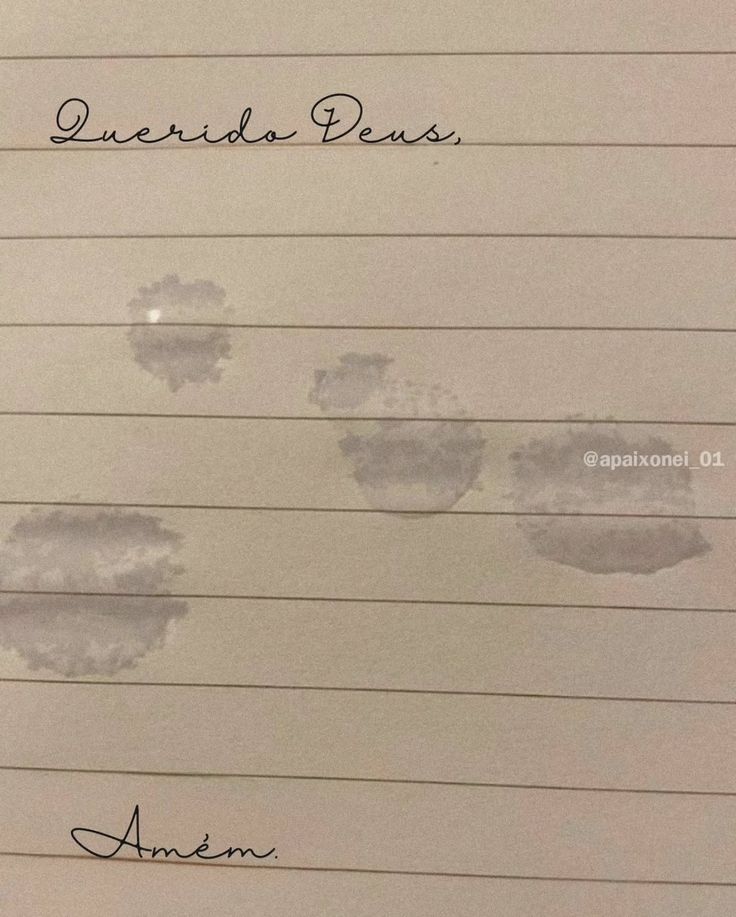 Querido Deus,
@apaixonei_01
Amém.